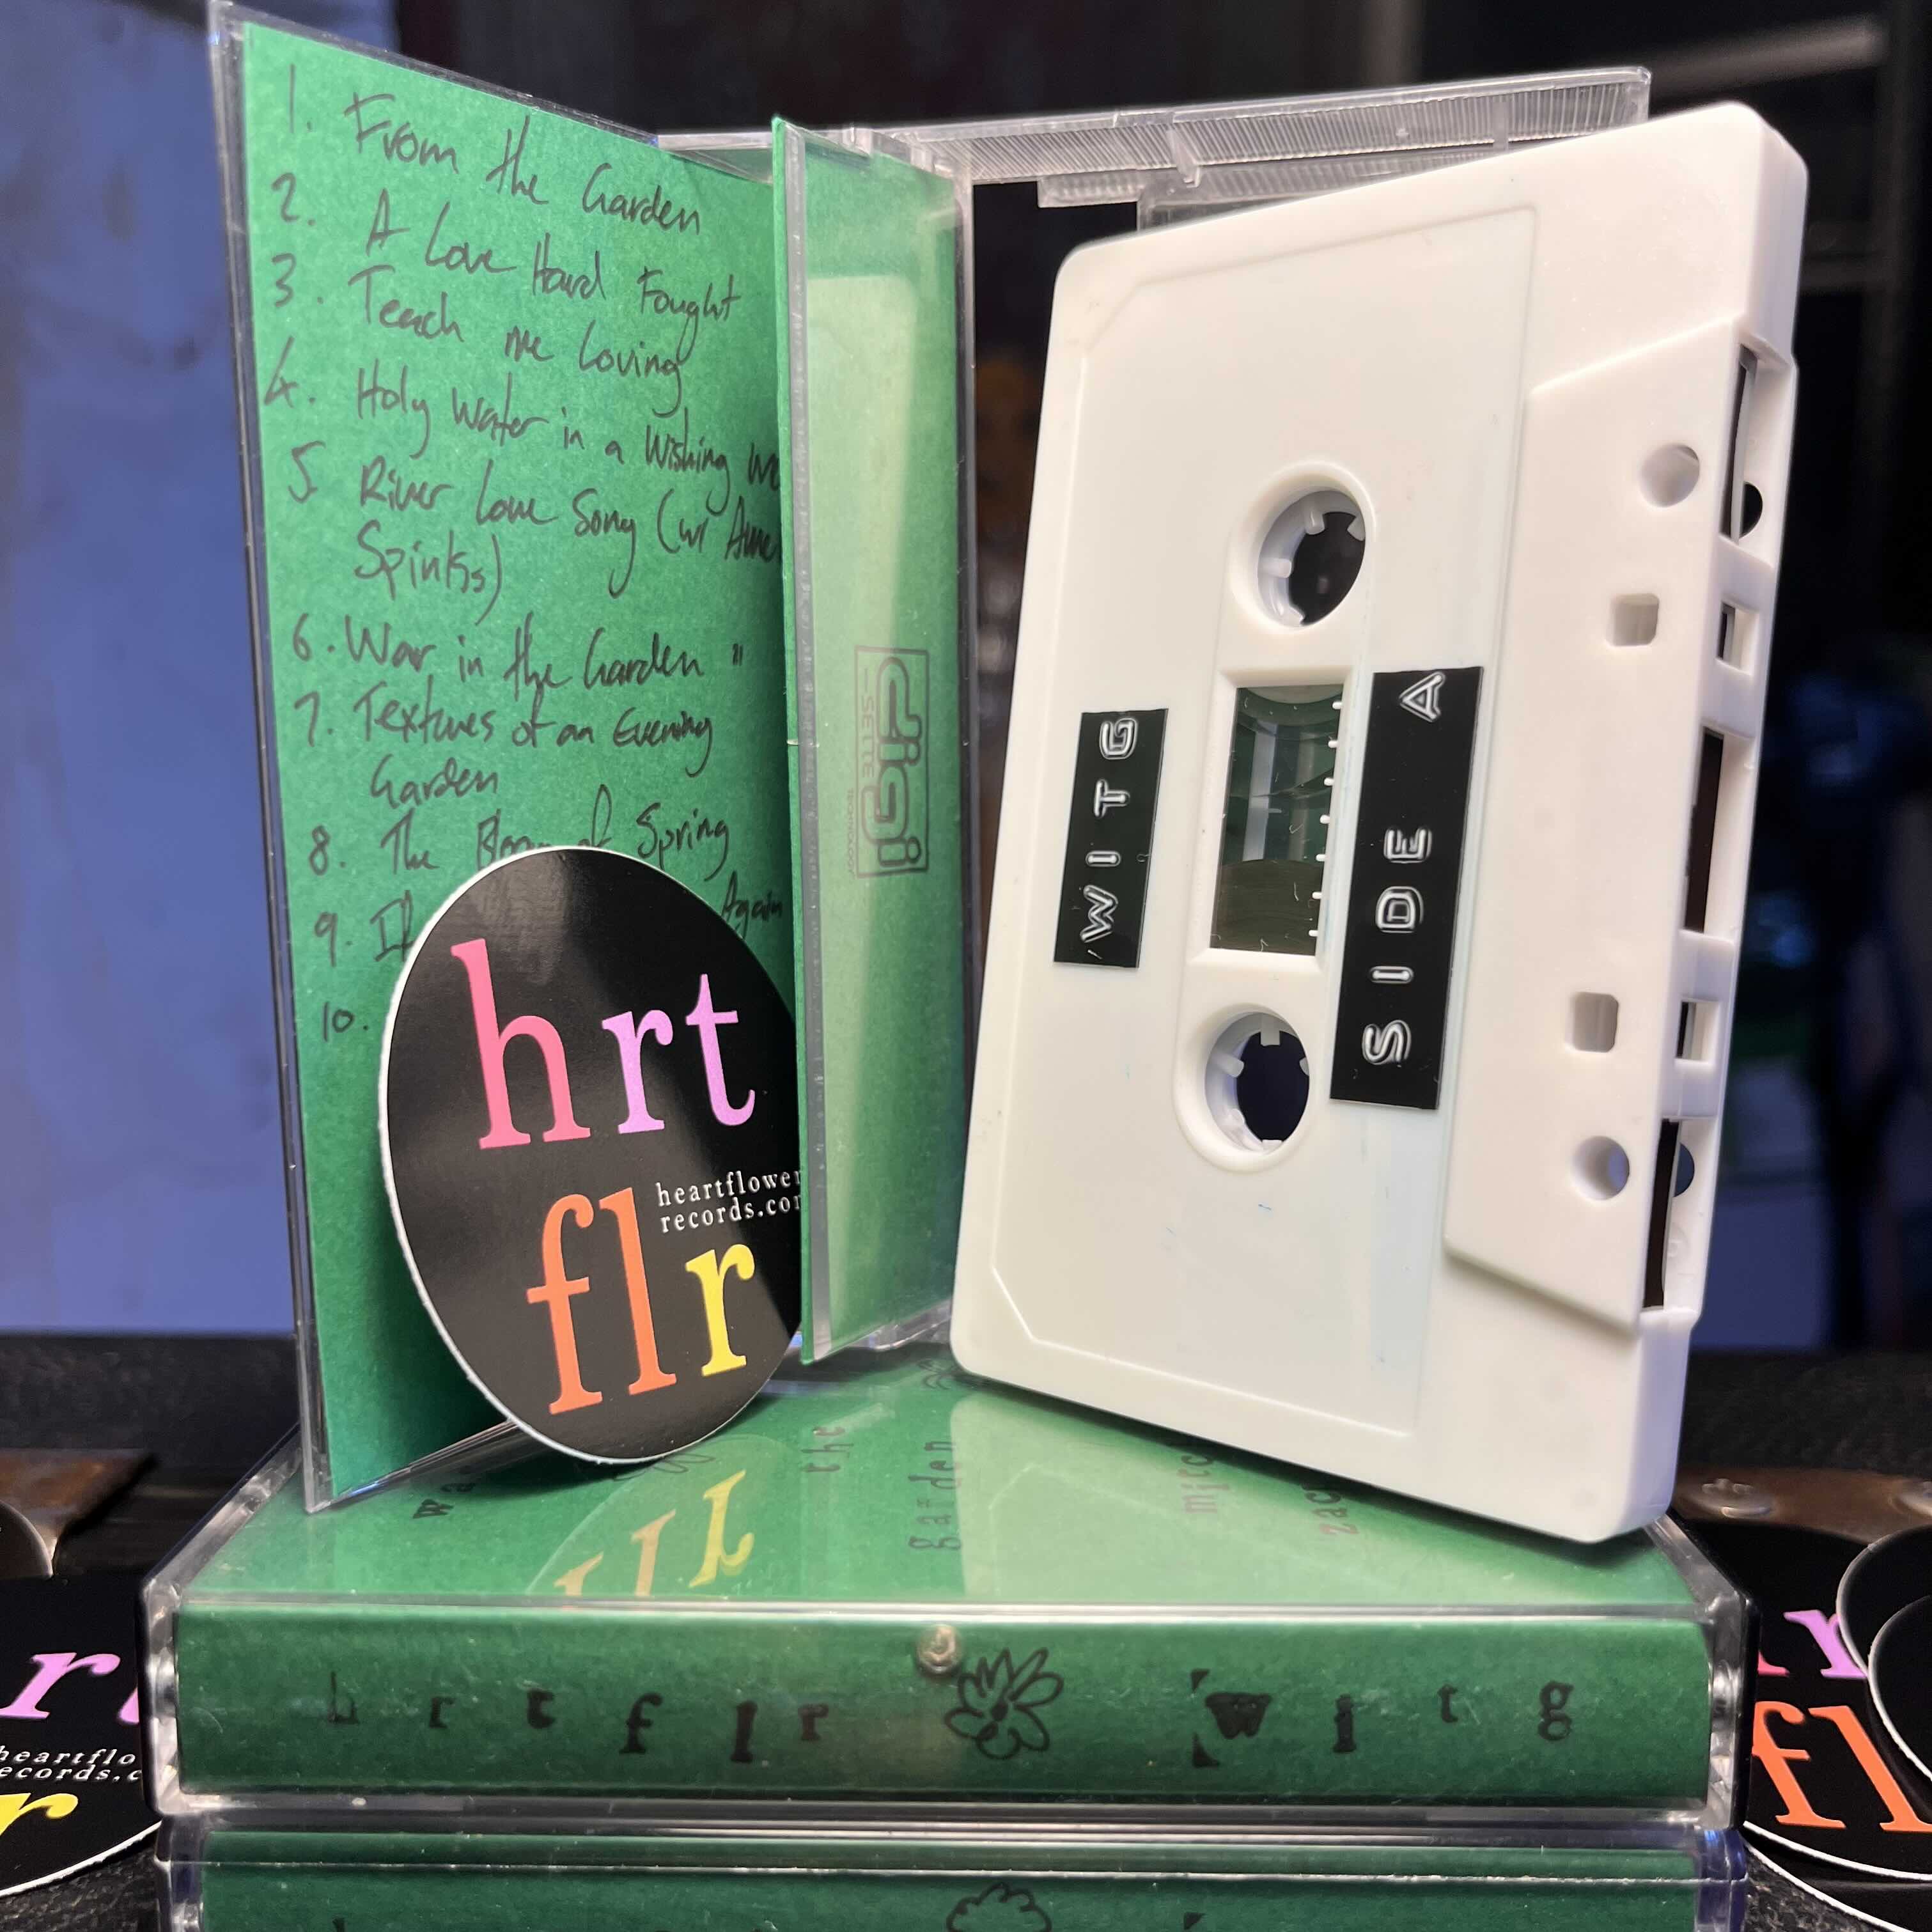 1. From the Garden
2. A Love Hard Fought
3. Teach me Loving
4. Holy Water in a Wishing
5. River Love Song (w/
Spinks)
6. War in the Garden "
7. Textures of an Evening
Garden
8. The Bloom of Spring
9. Again
10.
hrt
heartflower
records.com
flr
digi
WITG
SIDE A
the
garden
hrtflr witg
heartflo
records.c
r
fl